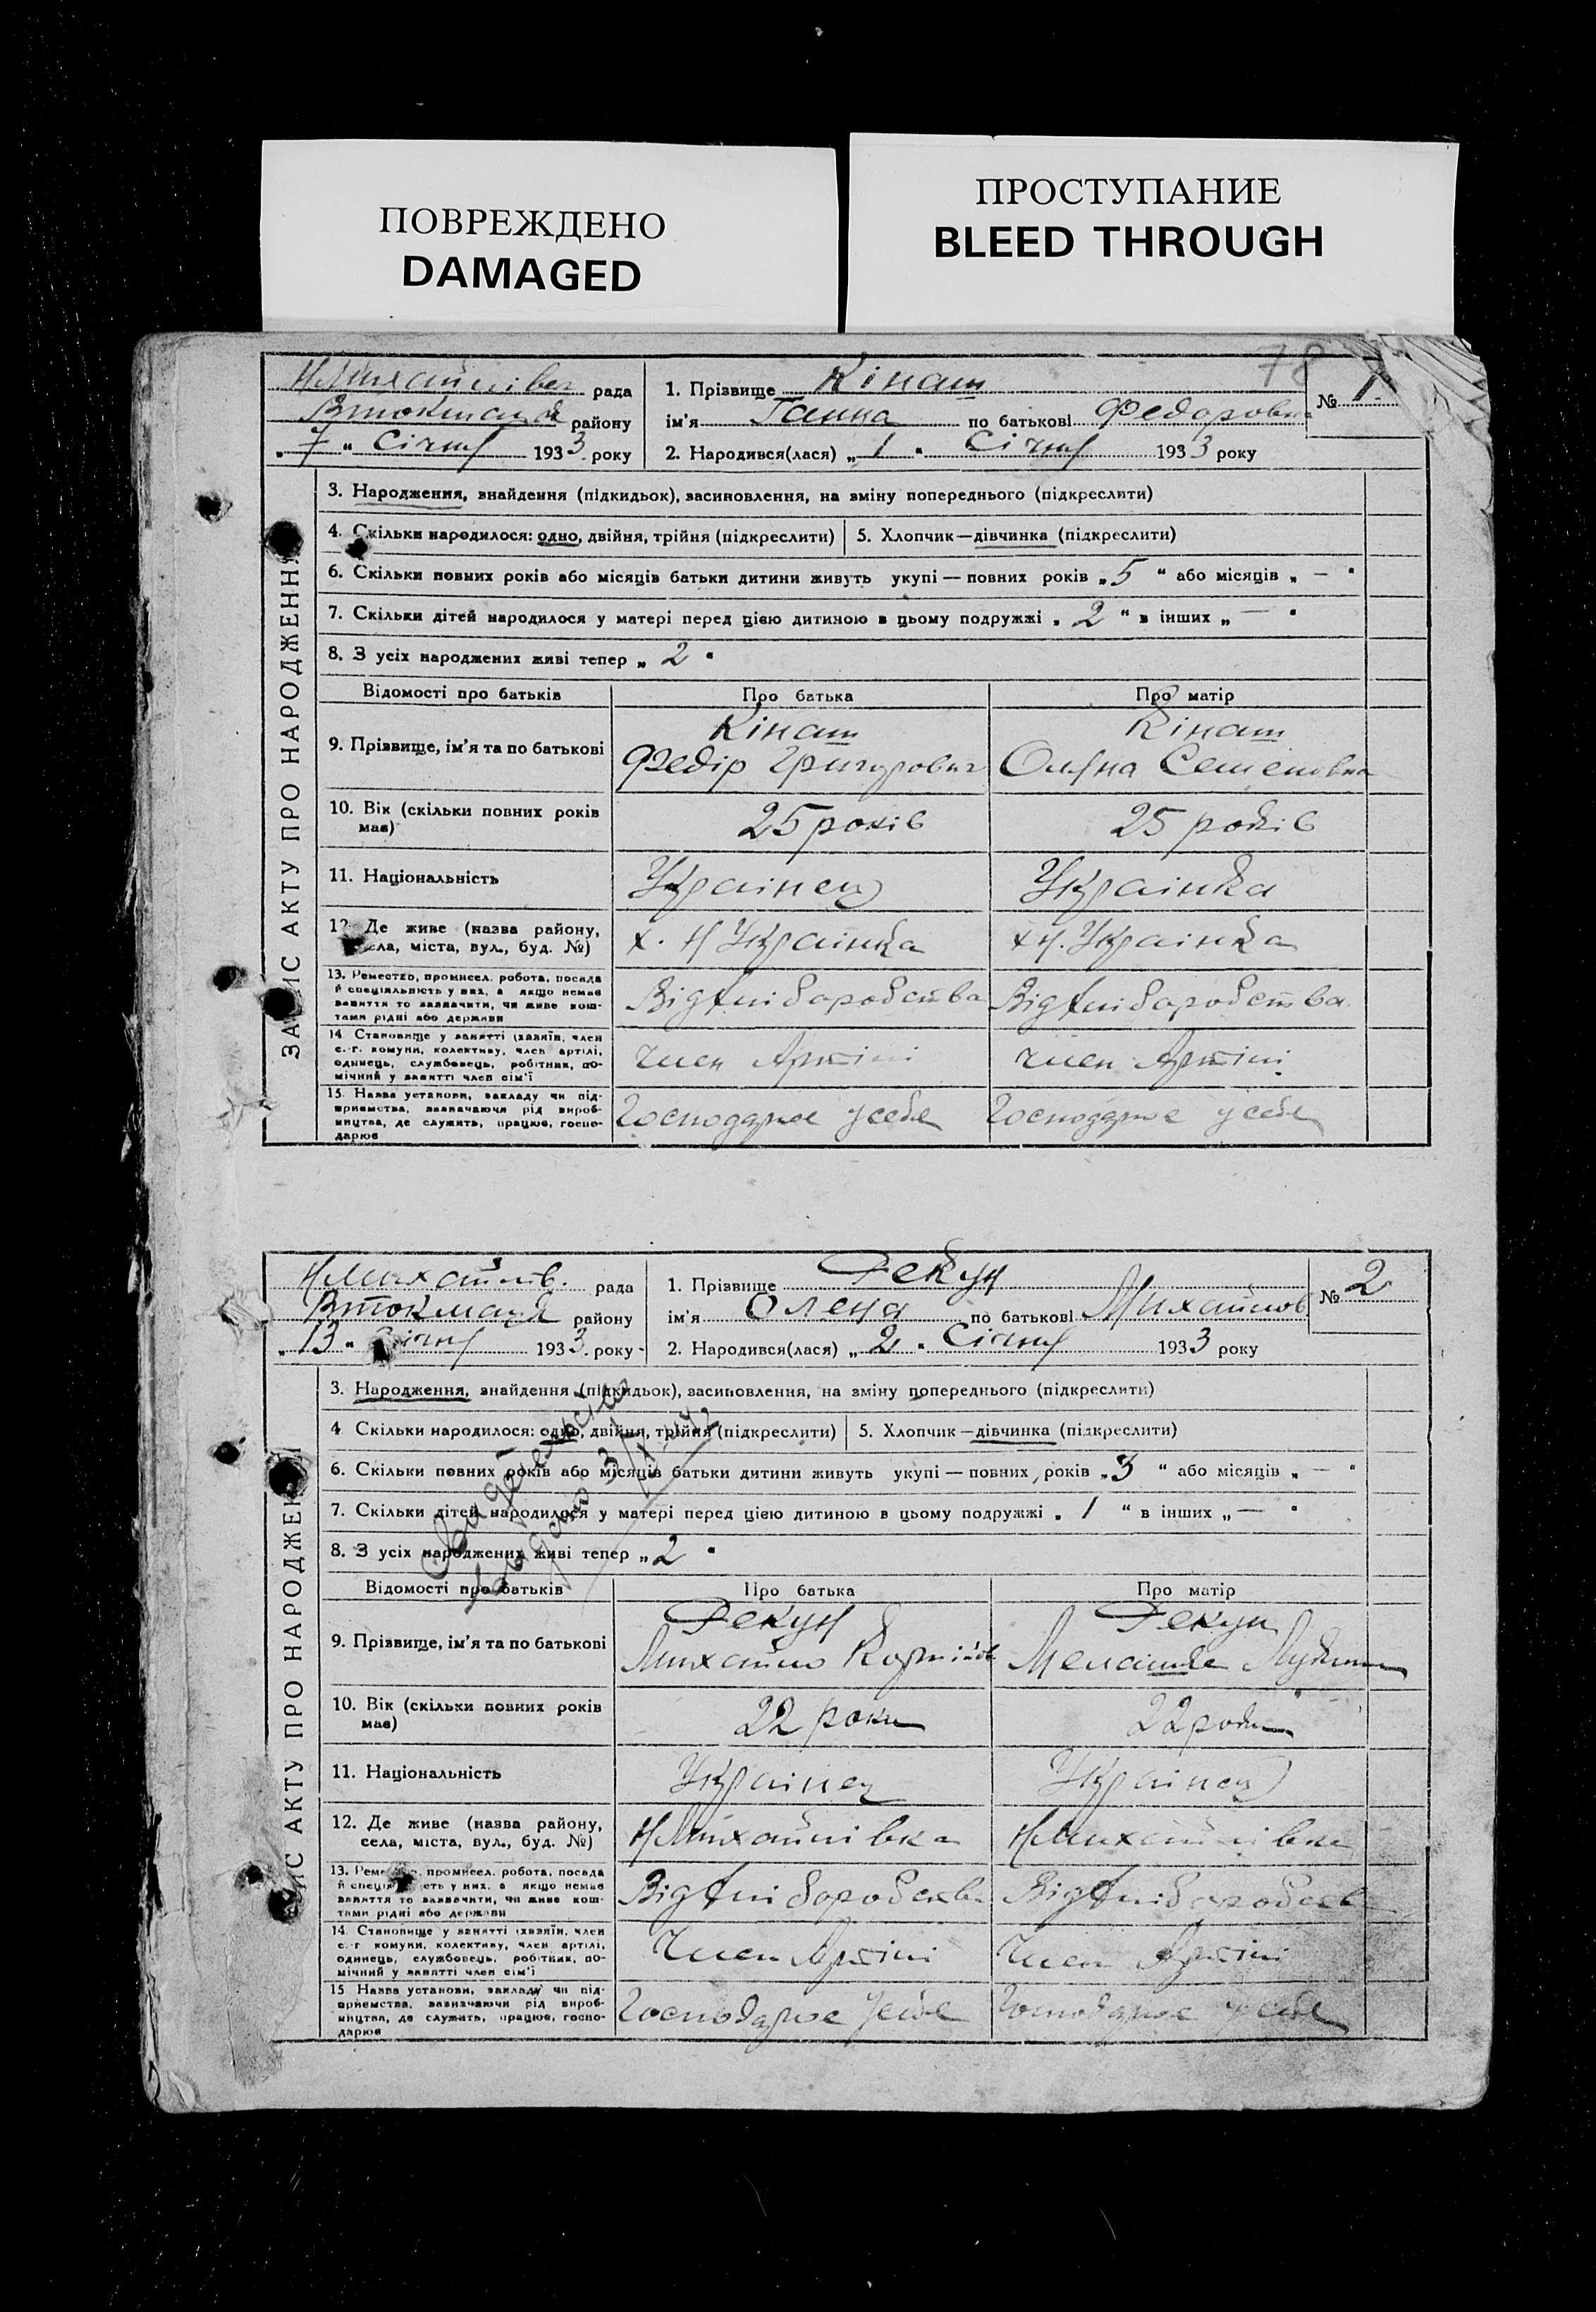 ПОВРЕЖДЕНО
DAMAGED
ПРОСТУПАНИЕ
BLEED THROUGH
78
рада
району
„7“ Січня 1933 року
1. Прізвище Кінаш
ім'я Ганна по батькові Федоровна
2. Народився(лася) „1“ Січня 1933 року
№ 1
ЗАПИС АКТУ ПРО НАРОДЖЕННЯ
3. Народження, знайдення (підкидьок), засиновлення, на зміну попереднього (підкреслити)
4. Скільки народилося: одно, двійня, трійня (підкреслити) 5. Хлопчик—дівчинка (підкреслити)
6. Скільки повних років або місяців батьки дитини живуть укупі — повних років „5“ або місяців „—“
7. Скільки дітей народилося у матері перед цією дитиною в цьому подружжі „2“ в інших „—“
8. З усіх народжених живі тепер „2“
Відомості про батьків Про батька Про матір
9. Прізвище, ім'я та по батькові
Кінаш Кінаш
Федір Григорович Семеновна
10. Вік (скільки повних років
має)
25 років 25 років
11. Національність Українец Українка
12. Де живе (назва району,
села, міста, вул., буд. №)
х. Н Українка х Н. Українка
13. Ремество, промисел. робота, посада
й спеціяльність у них, а якщо немає
заняття то зазначити, чи живе кош-
тами рідні або держави
14. Становище у занятті (хазяїн, член
с.-г. комуни, колективу, член артілі,
одинець, службовець, робітник, по-
мічний у занятті член сім'ї
член Артілі член Артілі
15. Назва установи, закладу чи під-
приємства, зазначаючи рід вироб-
ництва, де служить, працює, госпо-
дарює
Господарює у себе Господарює у себе
рада
району
„13“ Січня 1933 року
1. Прізвище Фекун
ім'я Олена по батькові Михайлов
2. Народився(лася) „2“ Січня 1933 року
№ 2
ЗАПИС АКТУ ПРО НАРОДЖЕННЯ
3. Народження, знайдення (підкидьок), засиновлення, на зміну попереднього (підкреслити)
4 Скільки народилося: одно, двійня, трійня (підкреслити) 5. Хлопчик—дівчинка (підкреслити)
6. Скільки повних років або місяців батьки дитини живуть укупі — повних років „3“ або місяців „—“
7. Скільки дітей народилося у матері перед цією дитиною в цьому подружжі „1“ в інших „—“
8. З усіх народжених живі тепер „2“
Відомості про батьків Про батька Про матір
9. Прізвище, ім'я та по батькові
Фекун Фекун
Михайло
10. Вік (скільки повних років
має)
22 роки 22 роки
11. Національність Українец Українец
12. Де живе (назва району,
села, міста, вул., буд. №)
Н Михайлівка Н Михайлівка
13. Ремество, промисел. робота, посада
й спеціяльність у них, а якщо немає
заняття то зазначити, чи живе кош-
тами рідні або держави
14. Становище у занятті (хазяїн, член
с.-г комуни, колективу, член артілі,
одинець, службовець, робітник, по-
мічний у занятті член сім'ї
Член Артілі Член Артілі
15 Назва установи, закладу чи під-
приємства, зазначаючи рід вироб-
ництва, де служить, працює, госпо-
дарює
Господарює у себе Господарює у себе